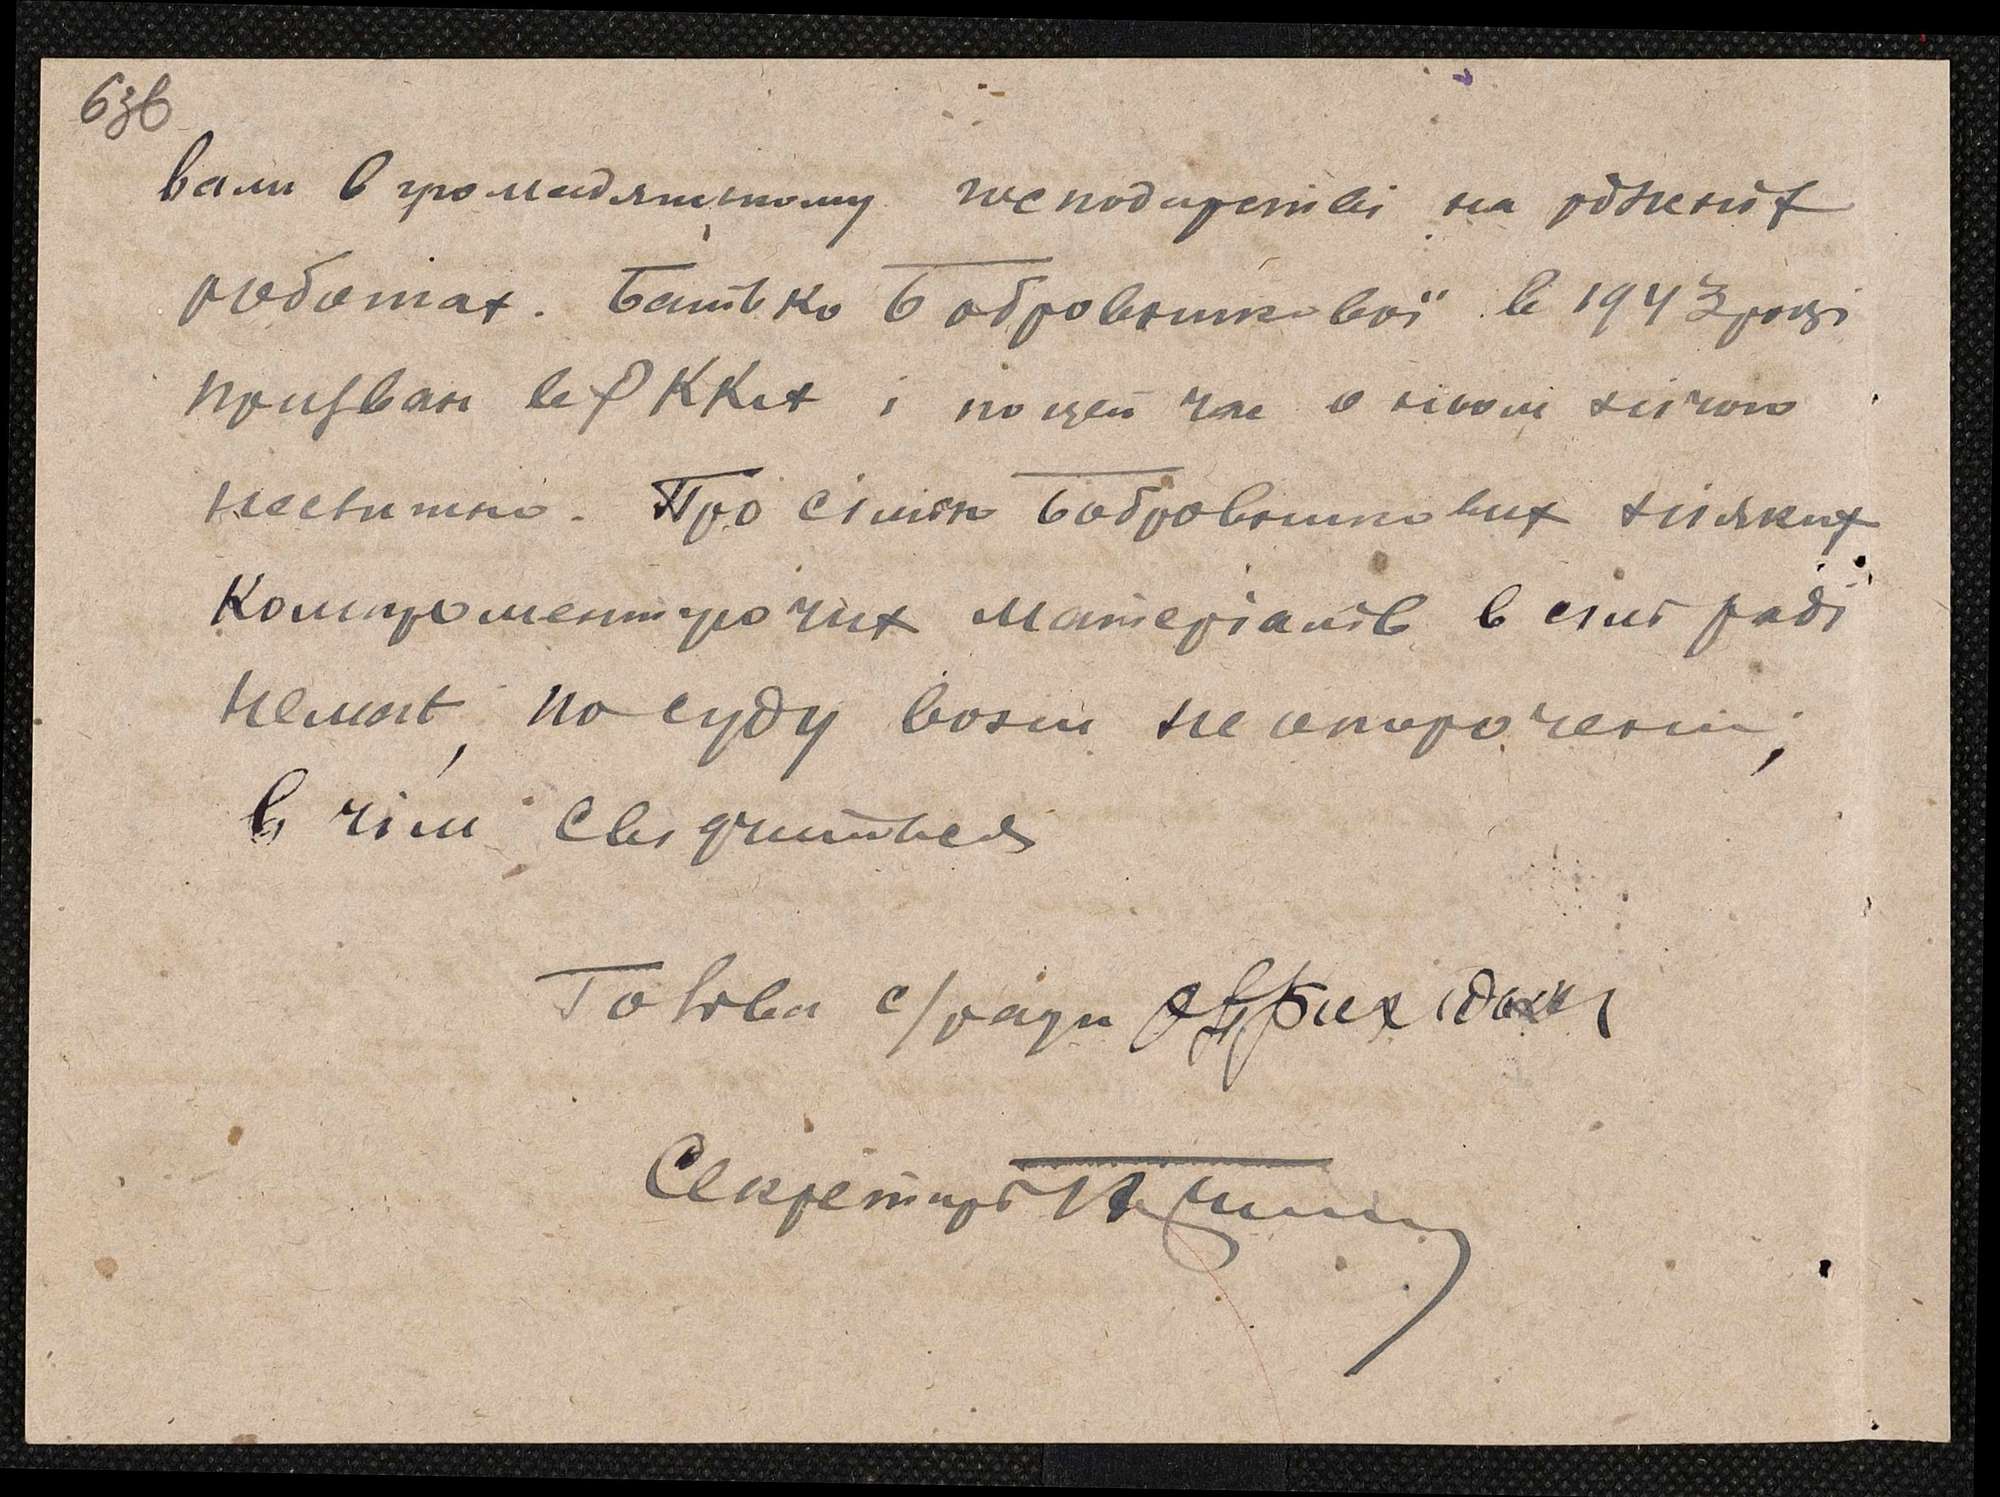 63в
вали в громадянському господарстві на різних
роботах. Батько Бобровникової в 1943 році
призван в РККА і по цей час о ньом нічого
невитно. Про сімю Бобровникових ніяких
Компроментуючих матеріалів в сіль раді
немає, по суду вони не опорочени,
в чім свідчиться
Голова с/ради
Секретарь